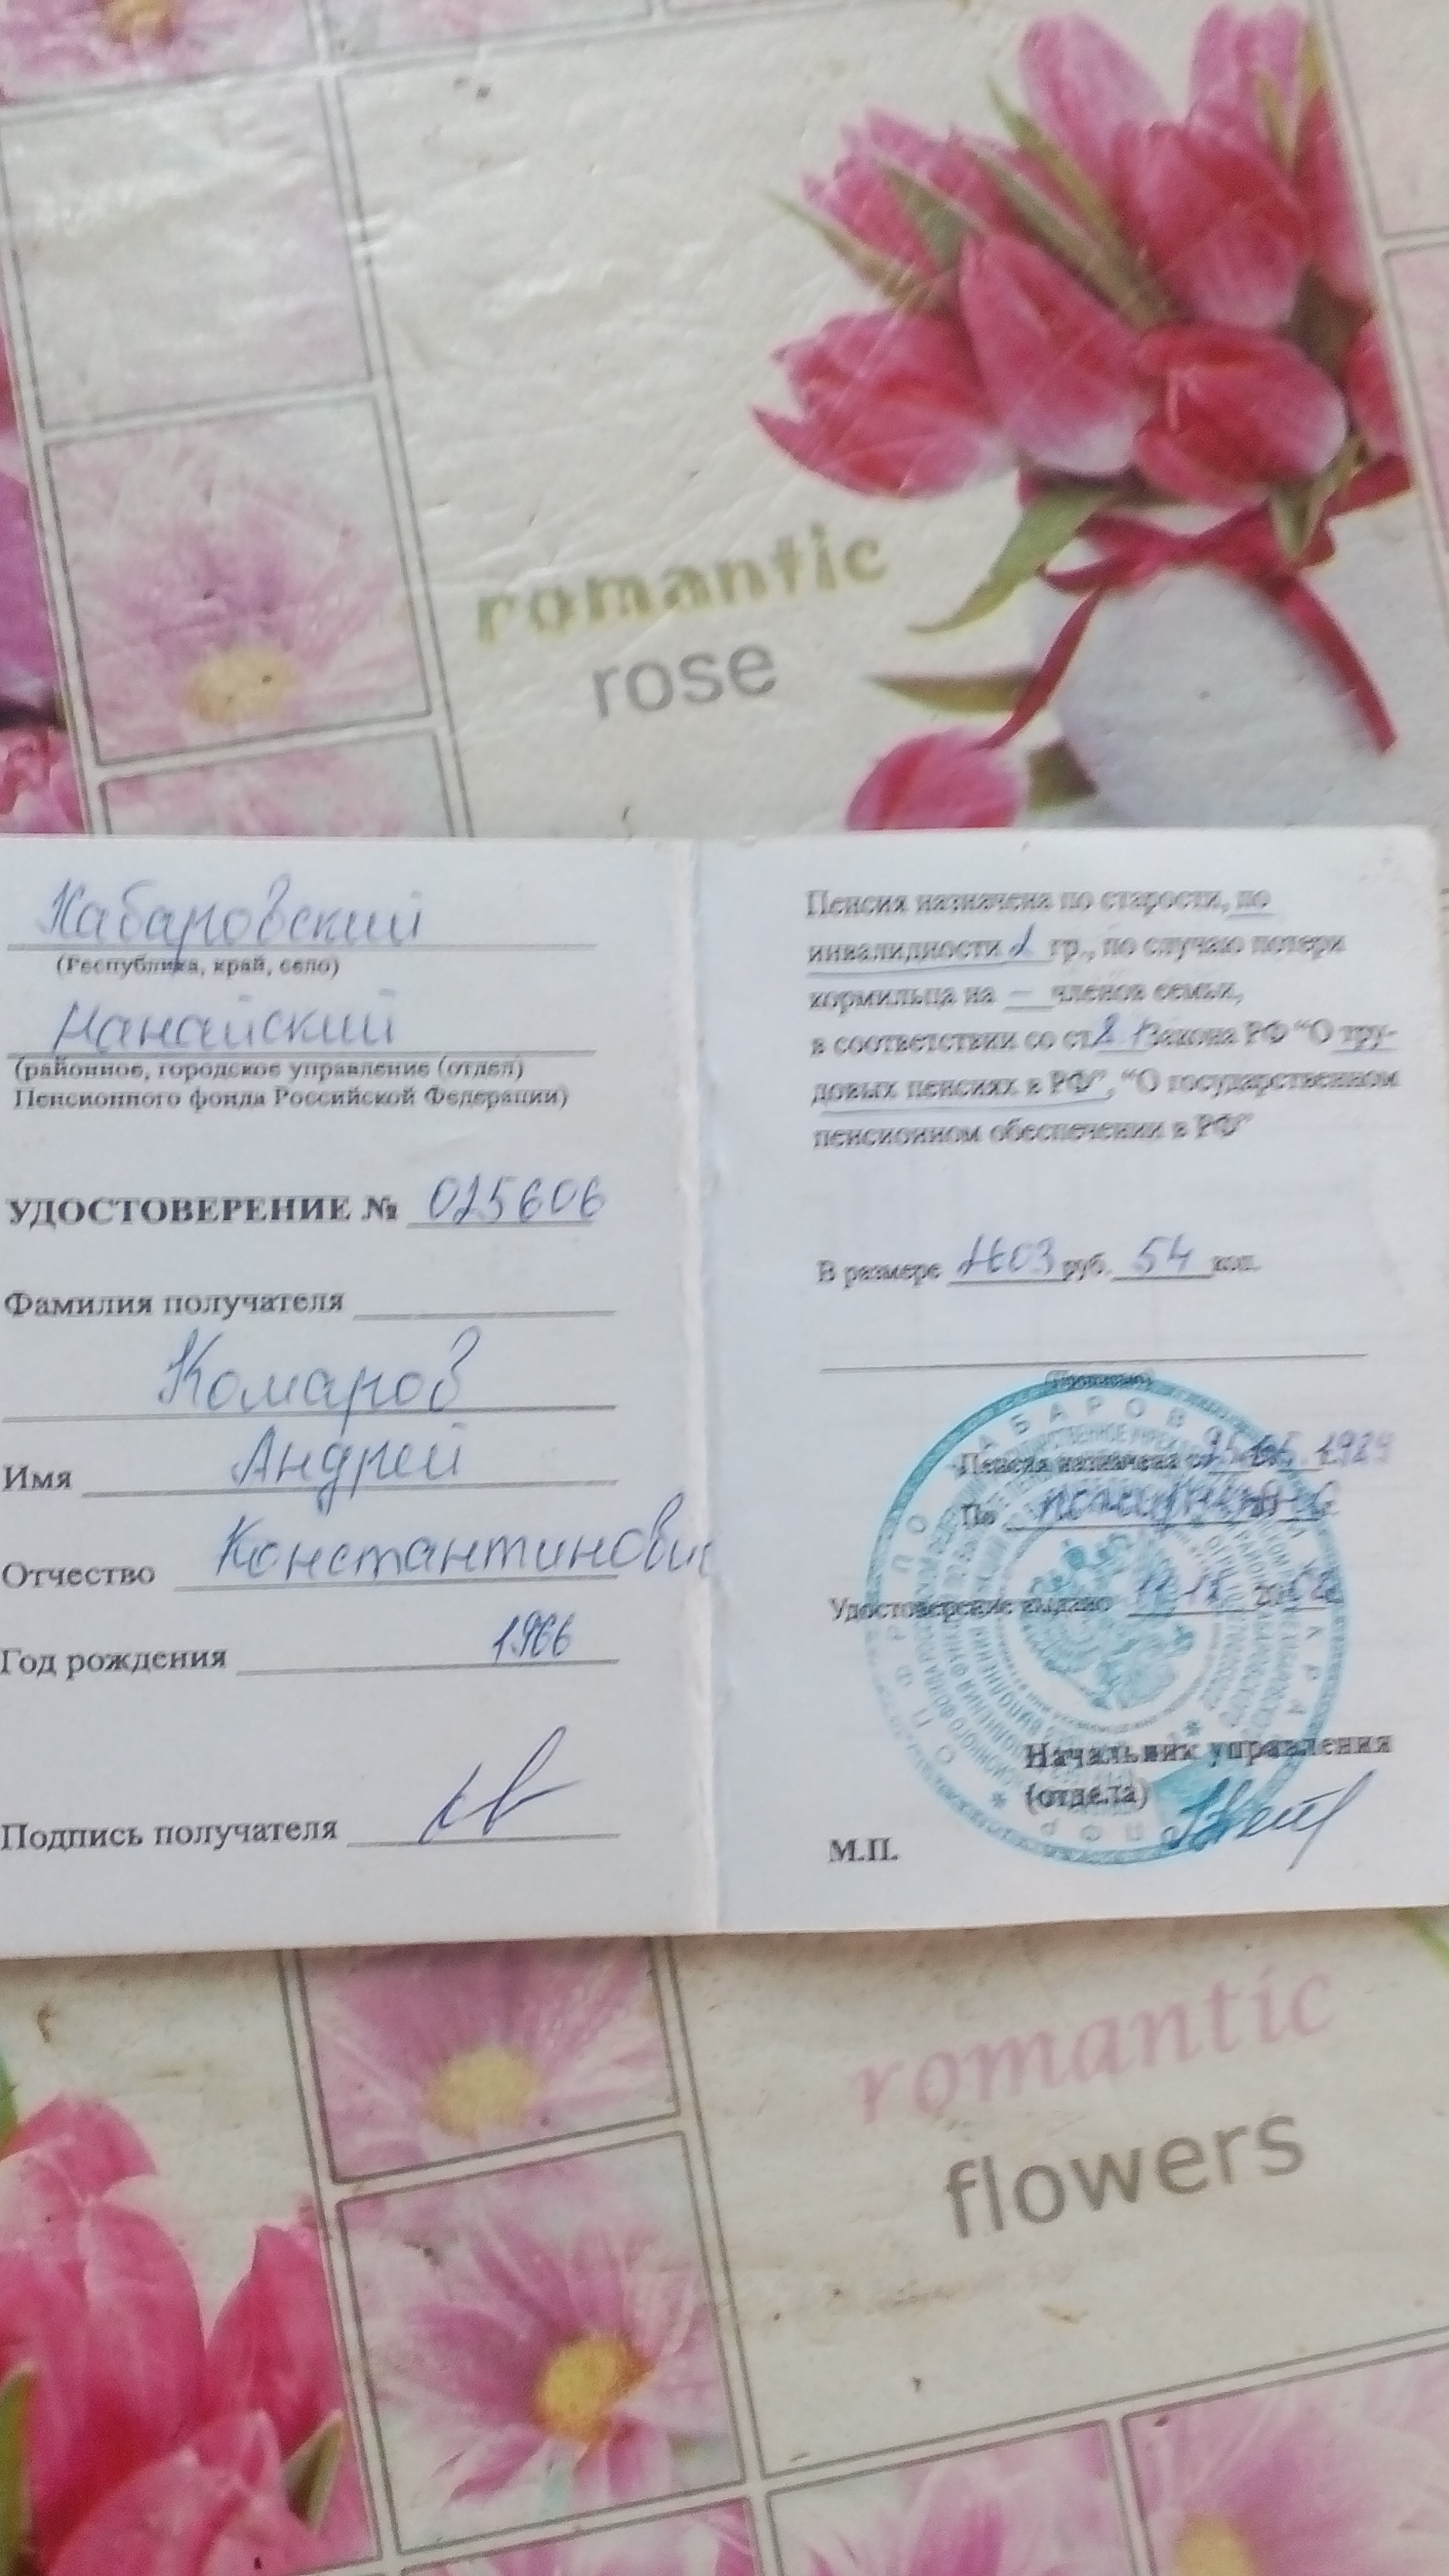 romantic
rose
Хабаровский
(Республика, край, село)
Нанайский
(районное, городское управление (отдел)
Пенсионного фонда Российской Федерации)
УДОСТОВЕРЕНИЕ № 025606
Фамилия получателя
Комаров
Имя Андрей
Отчество Константинович
Год рождения 1966
Подпись получателя
Пенсия назначена по старости, по
инвалидности 2 гр., по случаю потери
кормильца на — членов семьи,
в соответствии со ст. Закона РФ “О тру-
довых пенсиях в РФ”, “О государственном
пенсионном обеспечении в РФ”
В размере руб. 54 коп.
(Прописью)
Пенсия назначена с 1989
По
Удостоверение выдано
Начальник управления
(отдела)
М.П.
romantic
flowers